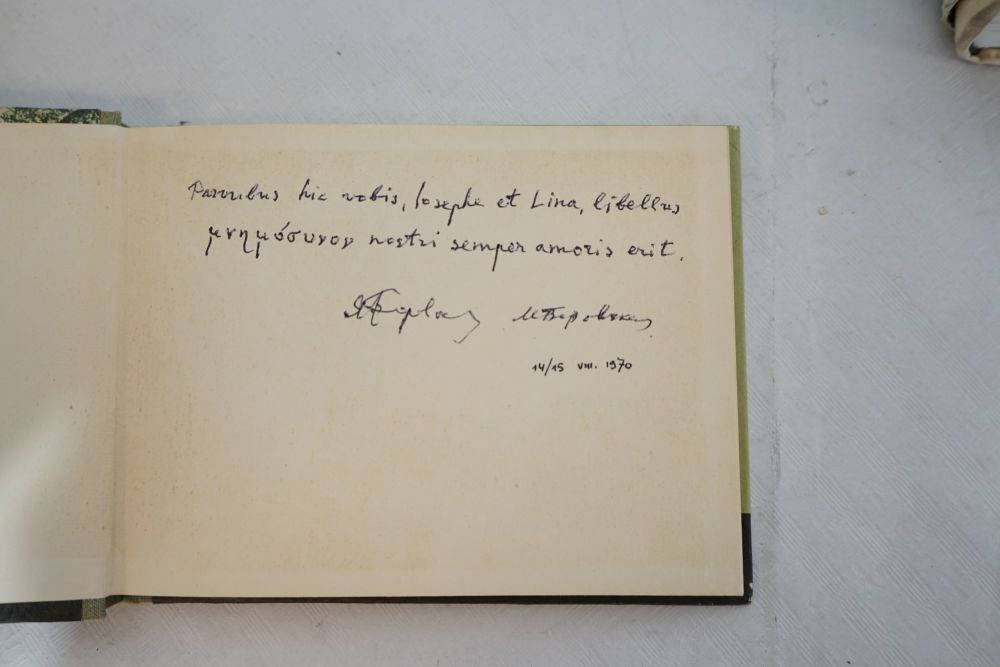 Parvulus hic vobis, Iosephe et Lina, libellus
μνημόσυνον nostri semper amoris erit.
14/15 VIII. 1970